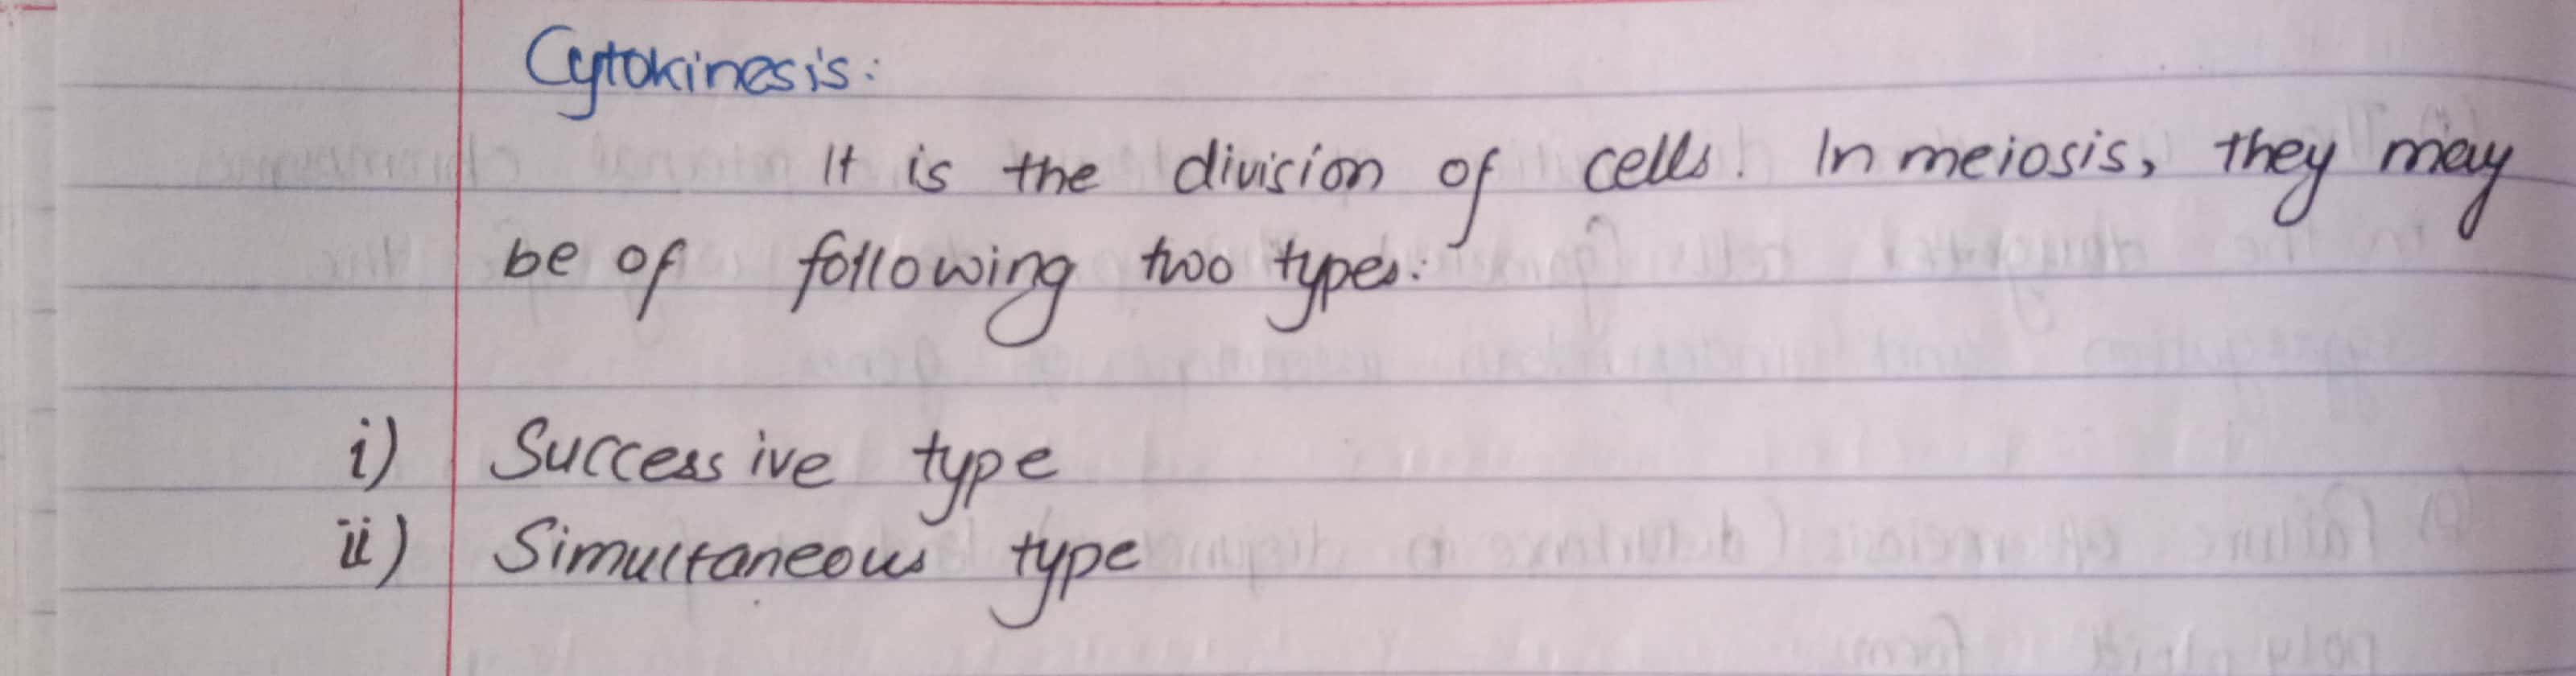 Cytokinesis:
It is the division of cells. In meiosis, they may
be of following two types:
i) Successive type
ii) Simultaneous type